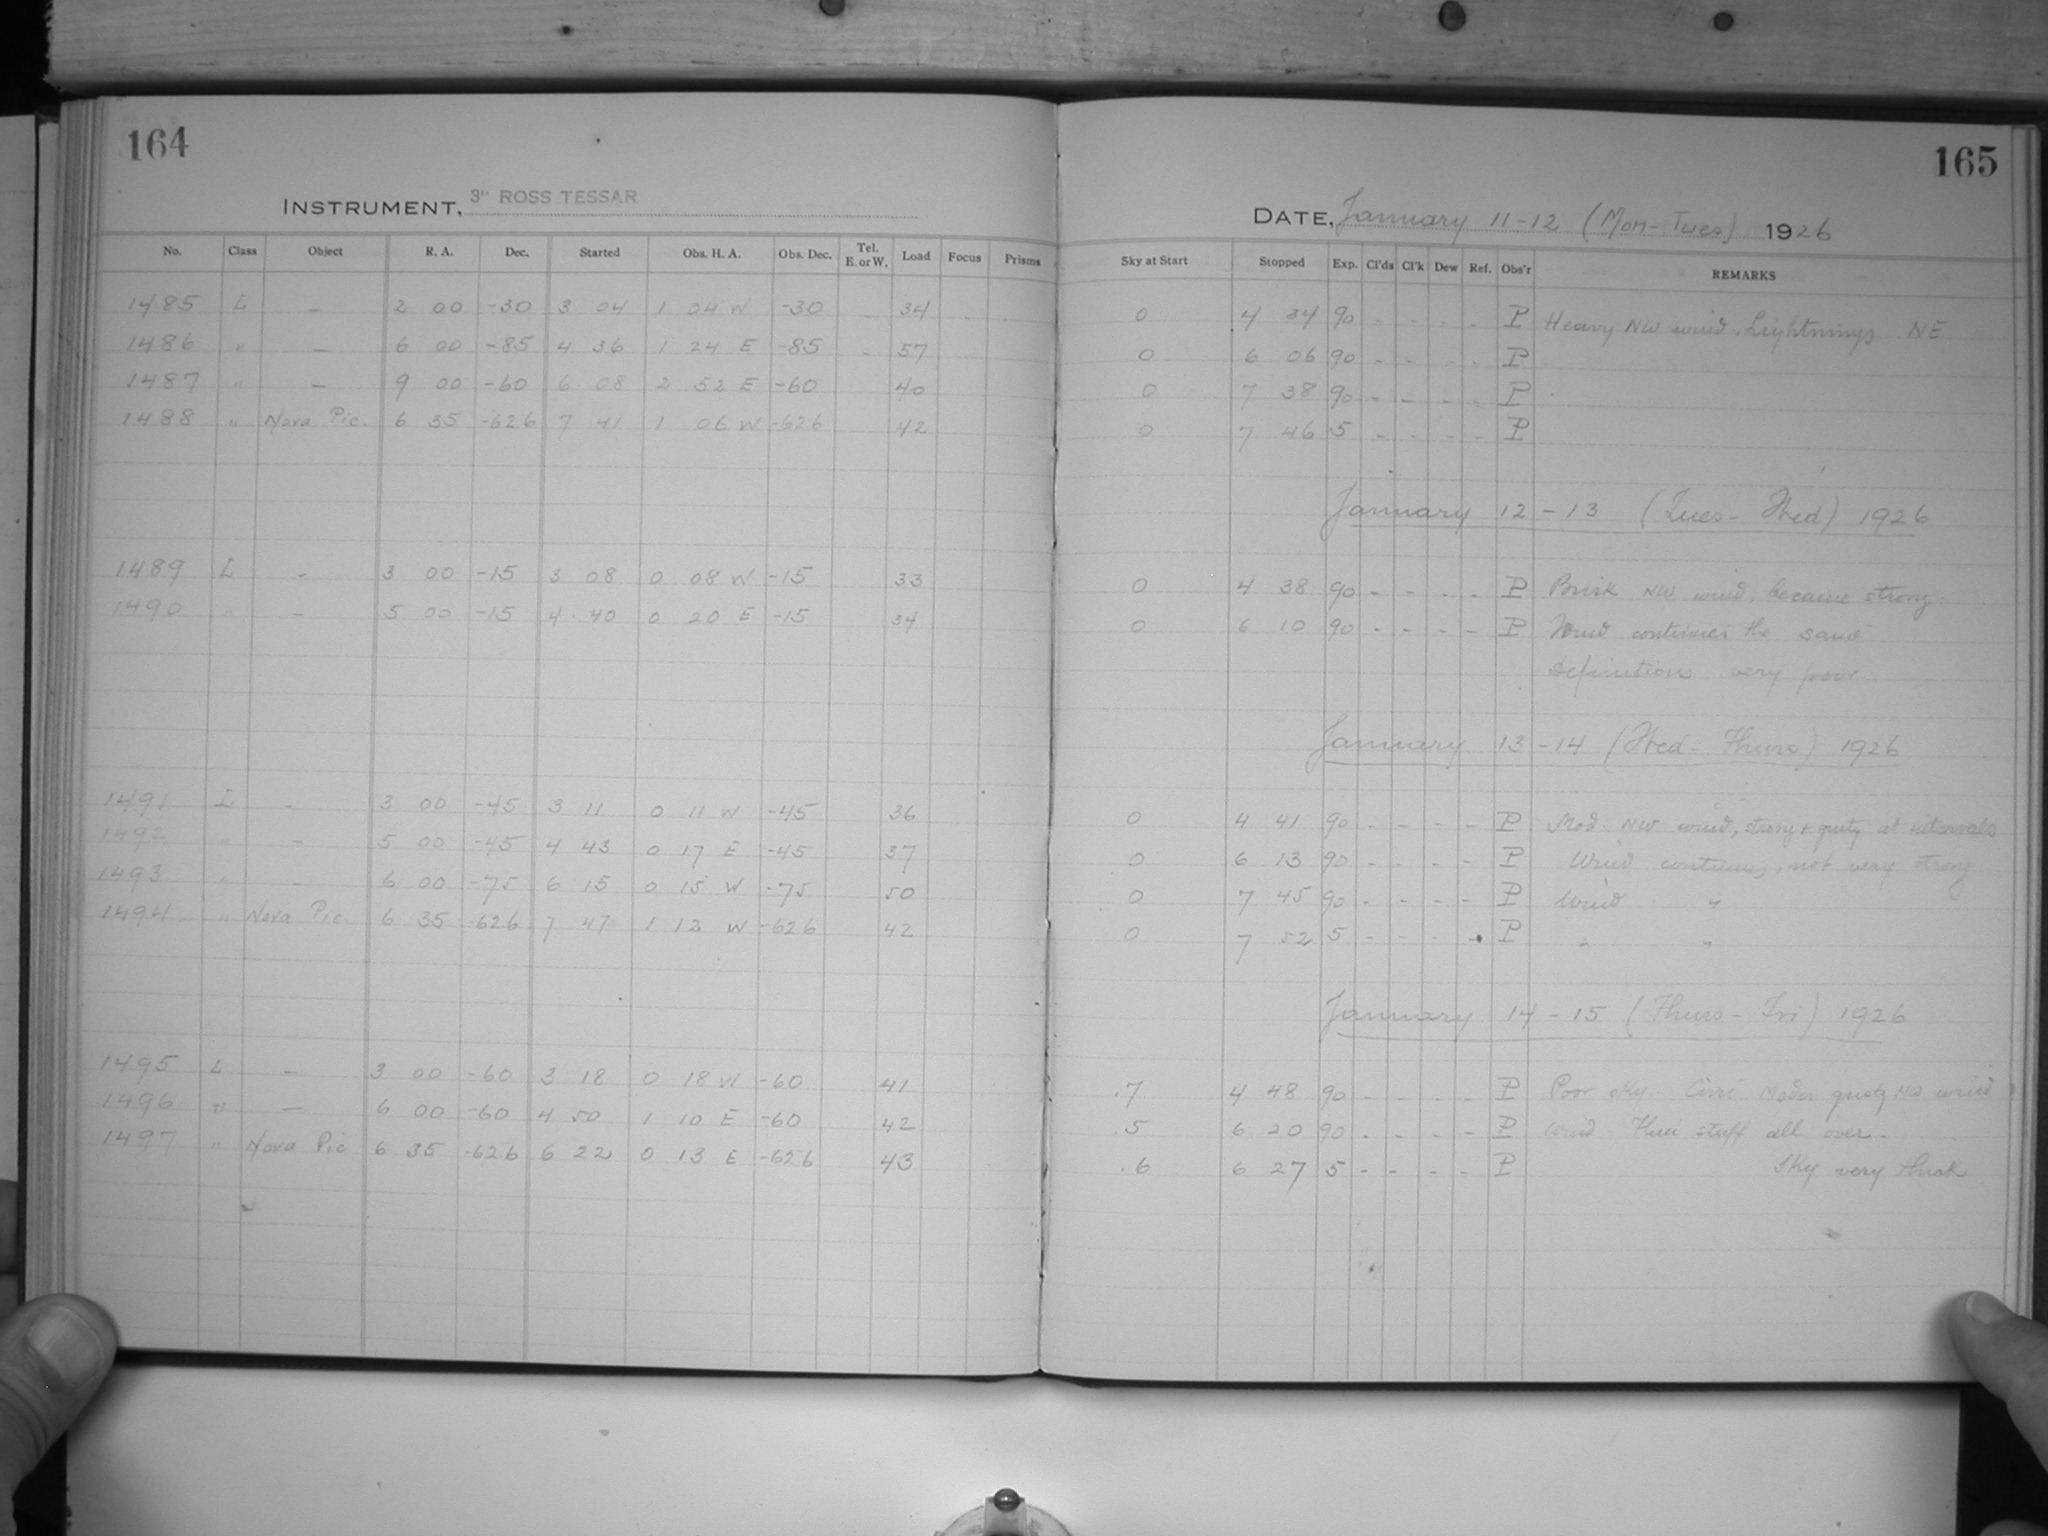 164
INSTRUMENT, 3" ROSS TESSAR
No. Class Object R. A. Dec. Started Obs. H. A. Obs. Dec. Tel. E. or W. Load Focus Prisms
1485 L - 2 00 -30 3 04 1 04 W -30 34
1486 " - 6 00 -85 4 36 1 24 E -85 57
1487 " - 9 00 -60 6 08 2 52 E -60 40
1488 " Nova Pic. 6 35 -626 7 41 1 06 W -626 42
1489 L - 3 00 -15 3 08 0 08 W -15 33
1490 " - 5 00 -15 4 40 0 20 E -15 34
1491 L - 3 00 -45 3 11 0 11 W -45 36
1492 " - 5 00 -45 4 43 0 17 E -45 37
1493 " - 6 00 -75 6 15 0 15 W -75 50
1494 " Nova Pic. 6 35 -626 7 47 1 12 W -626 42
1495 L - 3 00 -60 3 18 0 18 W -60 41
1496 " - 6 00 -60 4 50 1 10 E -60 42
1497 " Nova Pic 6 35 -626 6 22 0 13 E -626 43
165
DATE, January 11-12 (Mon-Tues) 1926
Sky at Start Stopped Exp. Cl'ds Cl'k Dew Ref. Obs'r REMARKS
0 4 34 90 - - - - P Heavy NW wind. Lightnings NE
0 6 06 90 - - - - P
0 7 38 90 - - - - P
0 7 46 5 - - - - P
January 12-13 (Tues-Wed) 1926
0 4 38 90 - - - - P Brisk NW wind. became strong.
0 6 10 90 - - - - P Wind continues the same
Definitions very poor
January 13-14 (Wed-Thurs) 1926
0 4 41 90 - - - - P Mod. NW wind, strong + gusty at intervals
0 6 13 90 - - - - P Wind continues, not very strong
0 7 45 90 - - - - P Wind "
0 7 52 5 - - - - P " "
January 14-15 (Thurs-Fri) 1926
.7 4 48 90 - - - - P Poor sky. Cirri Moder gusty NW wind
.5 6 20 90 - - - - P Wind - Thin stuff all over -
.6 6 27 5 - - - - P Sky very thick